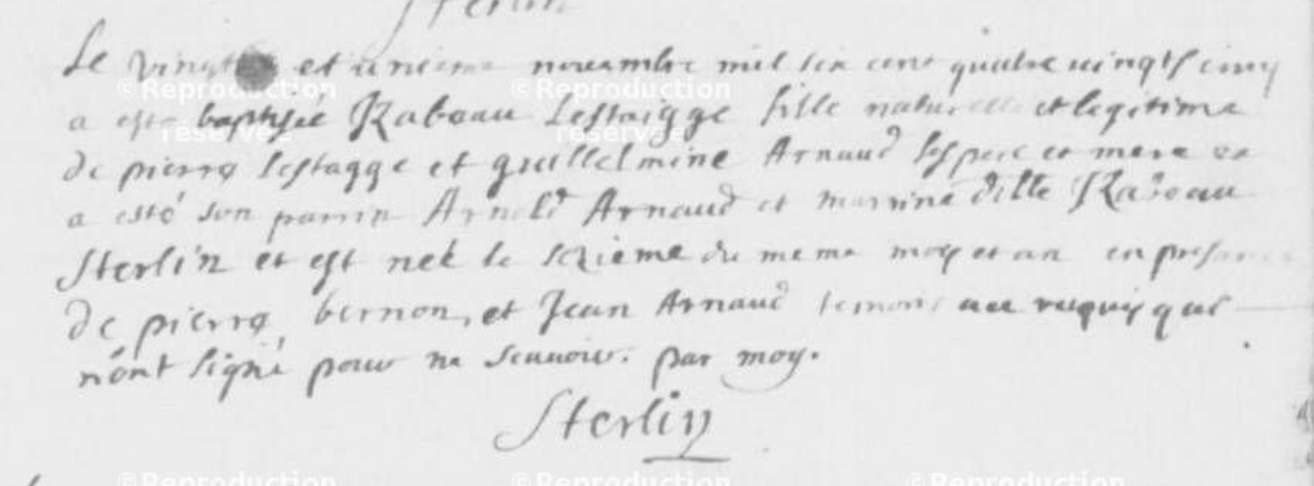 Sterlin
Le vingt et unieme novembre mil six cent quatre vingts cinq
a este baptisée Rabeau Lestaigge fille naturelle et legitime
de pierre Lestagge et guillelmine Arnaud ses pere et mere
a esté son parrin Arnald Arnaud et marrine ditte Rabeau
Sterlin et est neé le sezieme du meme moys et an en presance
de pierre bernon, et Jean Arnaud temoins requis qui
n'ont signé pour ne scauoir. par moy.
Sterlin
©Reproduction réservée
©Reproduction réservée
©Reproduction
©Reproduction
©Reproduction
©Reproduction